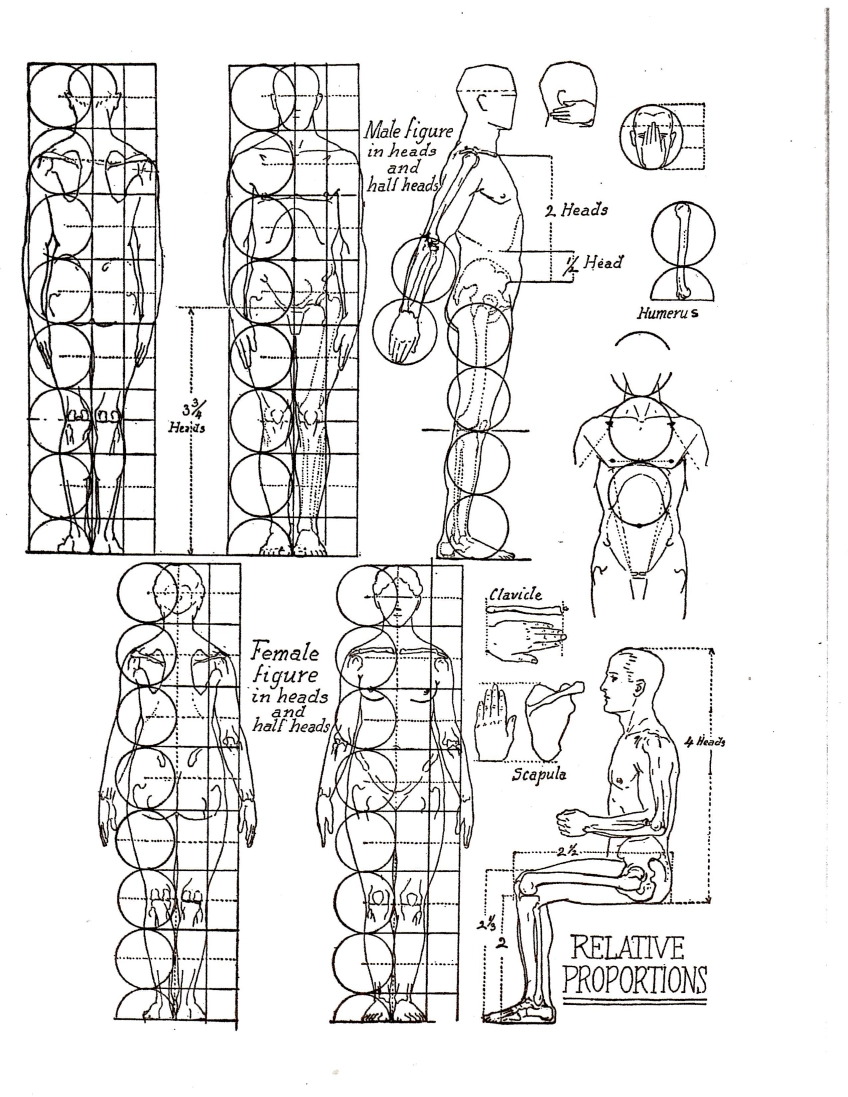 Male figure
in heads
and
half heads
2 Heads
½ Head
Humerus
3¾
Heads
Clavicle
Female
figure
in heads
and
half heads
Scapula
4 Heads
2½
2⅓
2
RELATIVE
PROPORTIONS